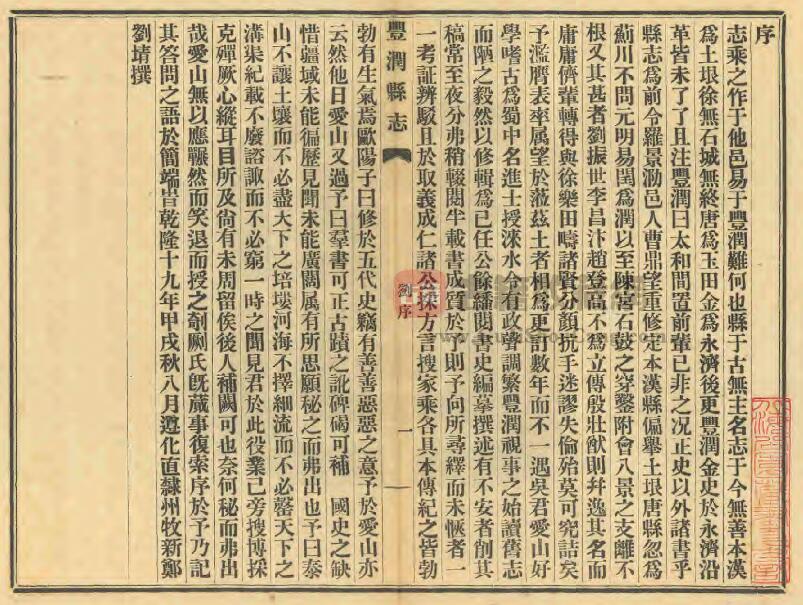 序
志乘之作于他邑易于豐潤難何也縣于古無主名志于今無善本漢
爲土垠徐無石城無終唐爲玉田金爲永濟後更豐潤金史於永濟沿
革皆未了了且注豐潤曰太和間置前輩已非之况正史以外諸書乎
縣志爲前令羅景泐邑人曹鼎望重修定本漢縣偏舉土垠唐縣忽爲
薊川不問元明易閏爲潤以至陳宮石鼓之穿鑿附會八景之支離不
根又其甚者劉振世李昌汴趙登高不爲立傳殷壯猷則幷逸其名而
庸庸儕輩轉得與徐樂田疇諸賢分顏抗手迷謬失倫殆莫可究詰矣
予濫膺表率属望於蒞茲土者相爲更訂數年而不一遇吳君愛山好
學嗜古爲蜀中名進士授淶水令有政聲調繁豐潤視事之始讀舊志
而陋之毅然以修輯爲已任公餘繙閱書史編摹撰述有不安者削其
稿常至夜分弗稍輟閱半載書成質於予則予向所尋繹而未愜者一
一考証辨駁且於取義成仁諸公採方言搜家乘各具本傳紀之皆勃
豐潤縣志
劉序
一
勃有生氣焉歐陽子曰修於五代史竊有善善惡惡之意予於愛山亦
云然他日愛山又過予曰羣書可正古蹟之訛碑碣可補 國史之缺
惜疆域未能徧歷見聞未能廣闊属有所思願秘之而弗出也予曰泰
山不讓土壤而不必盡天下之培塿河海不擇細流而不必罄天下之
溝渠紀載不廢諮諏而不必窮一時之聞見君於此役業已旁搜博採
克殫厥心縱耳目所及尙有未周留俟後人補闕可也奈何秘而弗出
哉愛山無以應囅然而笑退而授之剞劂氏旣蕆事復索序於予乃記
其答問之語於簡端旹乾隆十九年甲戌秋八月遵化直隸州牧新鄭
劉靖撰